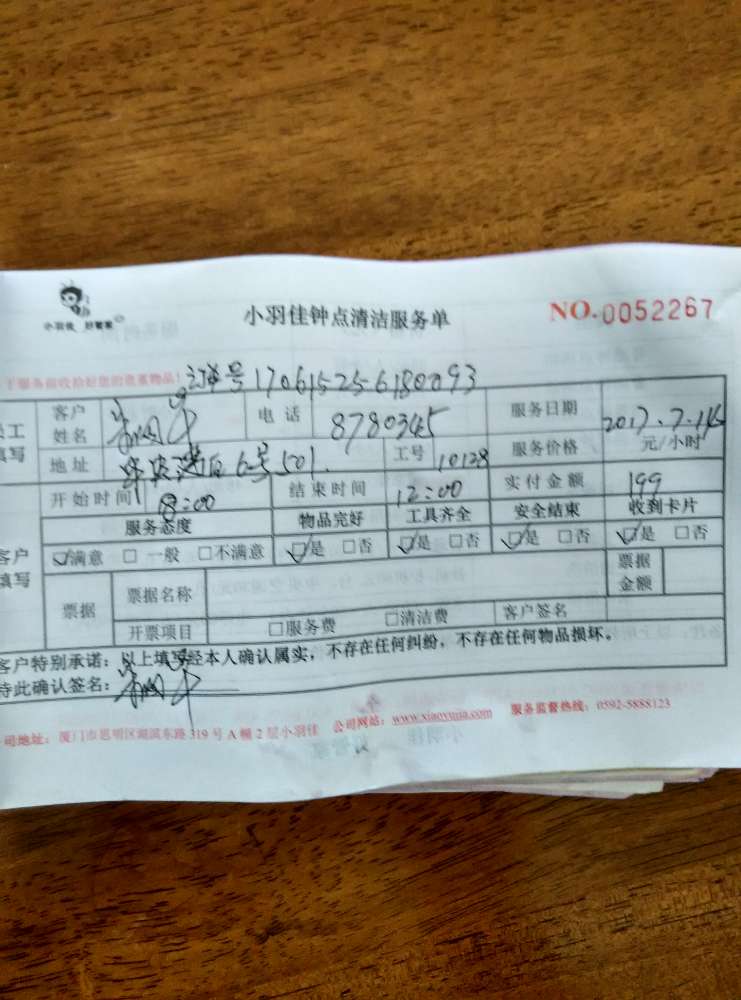 小羽佳 好管家
小羽佳钟点清洁服务单
NO.0052267
服务前收拾好您的贵重物品!
订单号170615256180093
客户姓名
电话 8780345
服务日期 2017.7.14
地址 6号501.
工号 10128
服务价格 元/小时
开始时间 8:00
结束时间 12:00
实付金额 199
服务态度 物品完好 工具齐全 安全结束 收到卡片
☑满意 □一般 □不满意 ☑是 □否 ☑是 □否 ☑是 □否 ☑是 □否
客户填写
票据 票据名称 票据金额
开票项目 □服务费 □清洁费 客户签名
客户特别承诺:以上填写经本人确认属实,不存在任何纠纷,不存在任何物品损坏。
持此确认签名:
司地址:厦门市思明区湖滨东路319号A幢2层小羽佳 公司网站:www.xiaoyujia.com 服务监督热线:0592-5888123